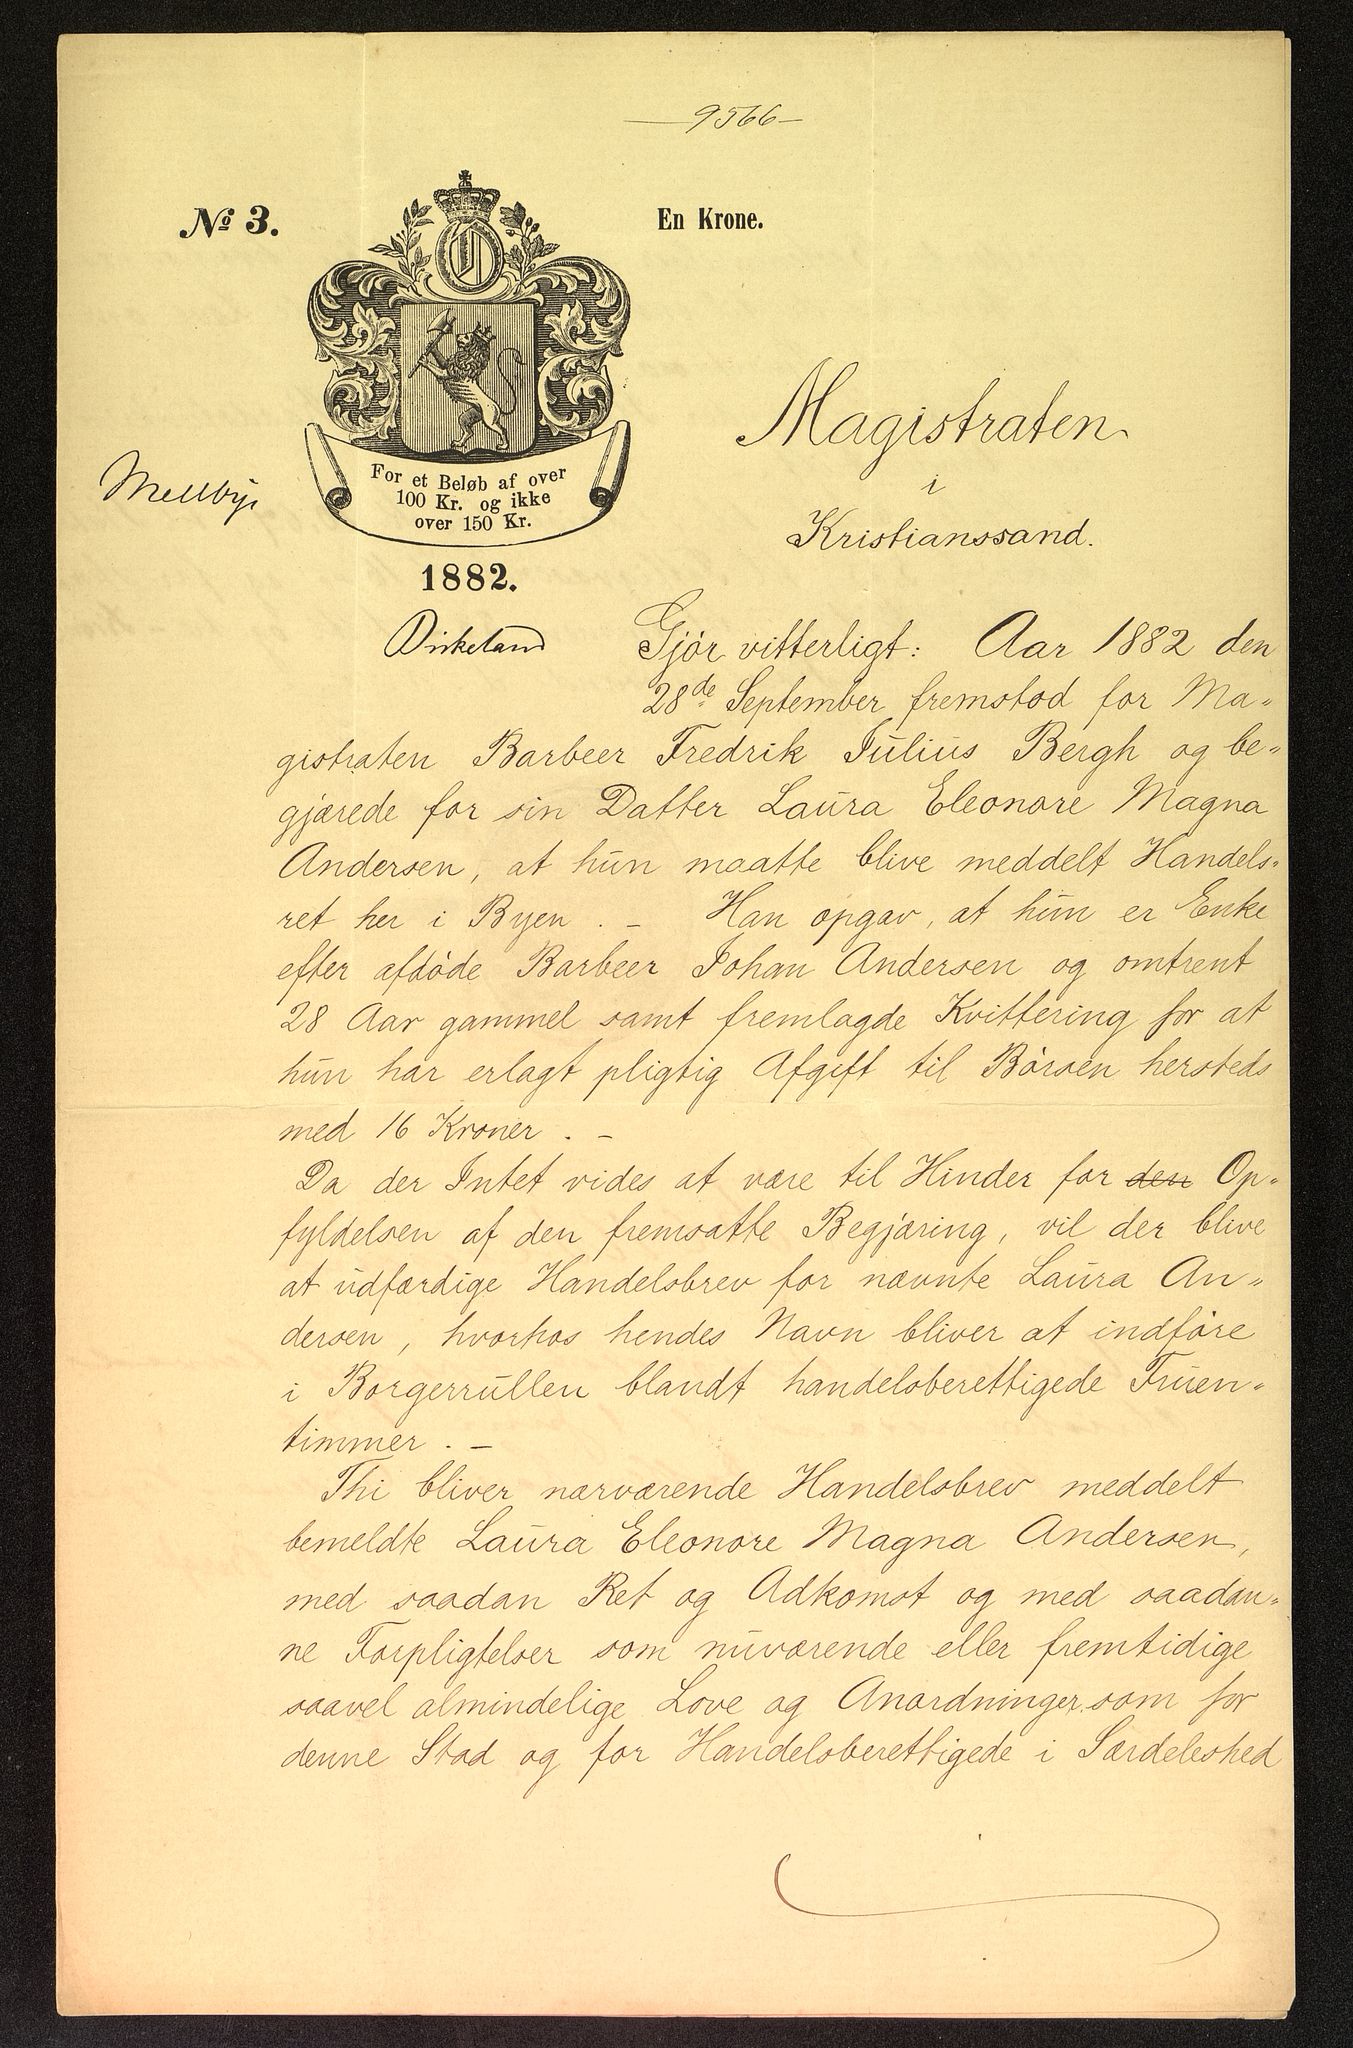 —9566—
No 3.
En Krone.
O
For et Beløb af over
100 Kr. og ikke
over 150 Kr.
1882.
Mellbye
Birkeland
Magistraten
i
Kristianssand.
Gjør vitterligt: Aar 1882 den
28de September fremstod for Ma-
gistraten Barbeer Fredrik Julius Bergh og be-
gjærede for sin Datter Laura Eleonore Magna
Andersen, at hun maatte blive meddelt Handels-
ret her i Byen. – Han opgav, at hun er Enke
efter afdøde Barbeer Johan Andersen og omtrent
28 Aar gammel samt fremlagde Kvittering for at
hun har erlagt pligtig Afgift til Børsen hersteds
med 16 Kroner. –
Da der Intet vides at være til Hinder for den Op-
fyldelsen af den fremsatte Begjæring, vil der blive
at udfærdige Handelsbrev for nævnte Laura An-
dersen, hvorhos hendes Navn bliver at indføre
i Borgerrullen blandt handelsberettigede Fruen-
timmer. –
Thi bliver nærværende Handelsbrev meddelt
bemeldte Laura Eleonore Magna Andersen,
med saadan Ret og Adkomst og med saadan-
ne Forpligtelser som nuværende eller fremtidige
saavel almindelige Love og Anordninger som for
denne Stad og for Handelsberettigede i Særdeleshed